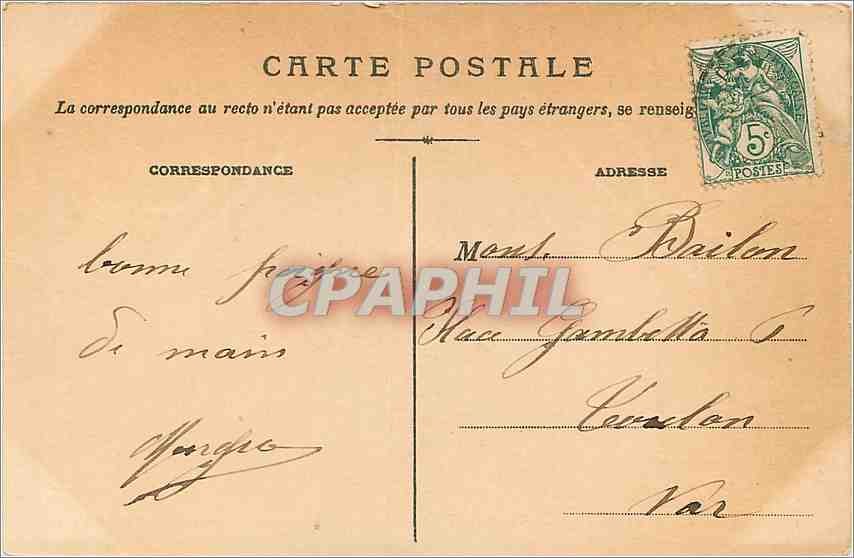 CARTE POSTALE
La correspondance au recto n'étant pas acceptée par tous les pays étrangers, se renseig
5c
POSTES
CORRESPONDANCE
ADRESSE
bonne poigne
de main
CPAPHIL
Mons. Brilon
Place Gambetta
Toulon
Var